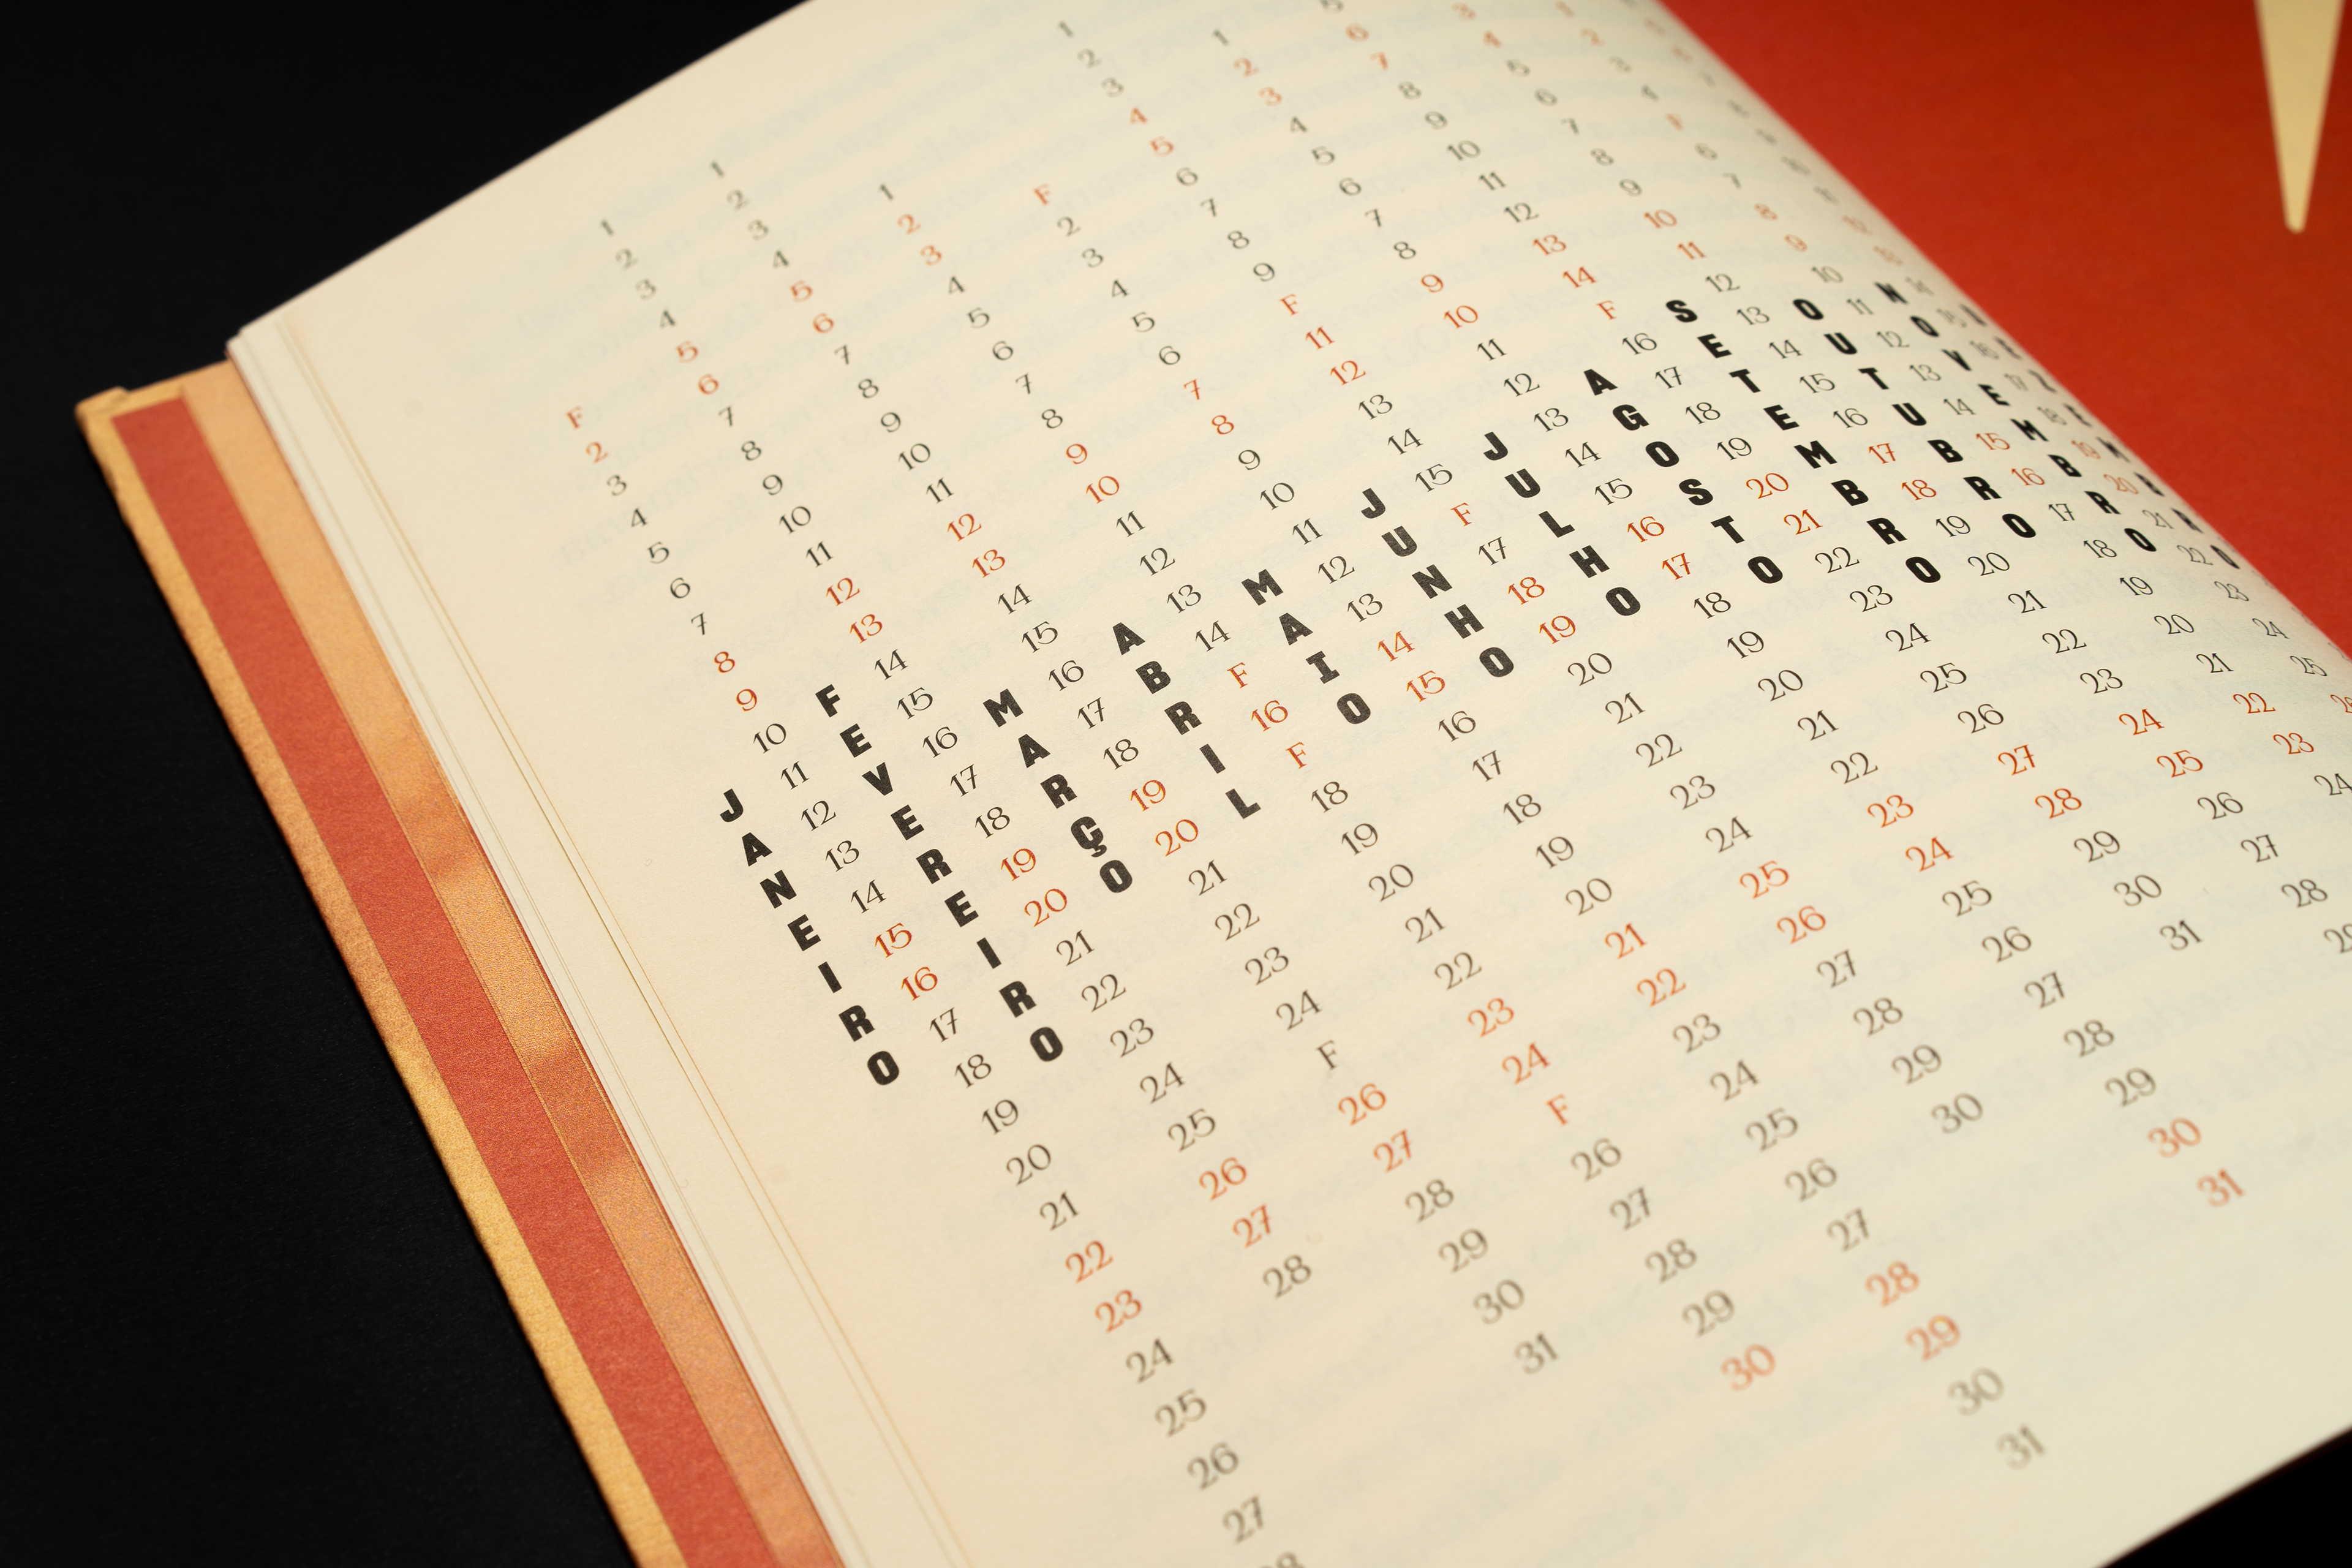 JANEIRO
F
2
3
4
5
6
7
8
9
10
11
12
13
14
15
16
17
18
19
20
21
22
23
24
25
26
27
28
FEVEREIRO
1
2
3
4
5
6
7
8
9
10
11
12
13
14
15
16
17
18
19
20
21
22
23
24
25
26
27
28
MARÇO
1
2
3
4
5
6
7
8
9
10
11
12
13
14
15
16
17
18
19
20
21
22
23
24
F
26
27
28
29
30
31
ABRIL
1
2
3
4
5
6
7
8
9
10
11
12
13
14
F
16
F
18
19
20
21
22
23
24
F
26
27
28
29
30
MAIO
F
2
3
4
5
6
7
8
9
10
11
12
13
14
15
16
17
18
19
20
21
22
23
24
25
26
27
28
29
30
31
JUNHO
1
2
3
4
5
6
7
8
9
F
11
12
13
14
15
F
17
18
19
20
21
22
23
24
25
26
27
28
29
30
JULHO
1
2
3
4
5
6
7
8
9
10
11
12
13
14
15
16
17
18
19
20
21
22
23
24
25
26
27
28
29
30
31
AGOSTO
5
6
7
8
9
10
11
12
13
14
F
16
17
18
19
20
21
22
23
24
25
26
27
28
29
30
31
SETEMBRO
3
4
5
6
7
8
9
10
11
12
13
14
15
16
17
18
19
20
21
22
23
24
25
26
27
28
29
OUTUBRO
1
2
3
4
F
6
7
8
9
10
11
12
13
14
15
16
17
18
19
20
21
22
23
24
NOVEMBRO